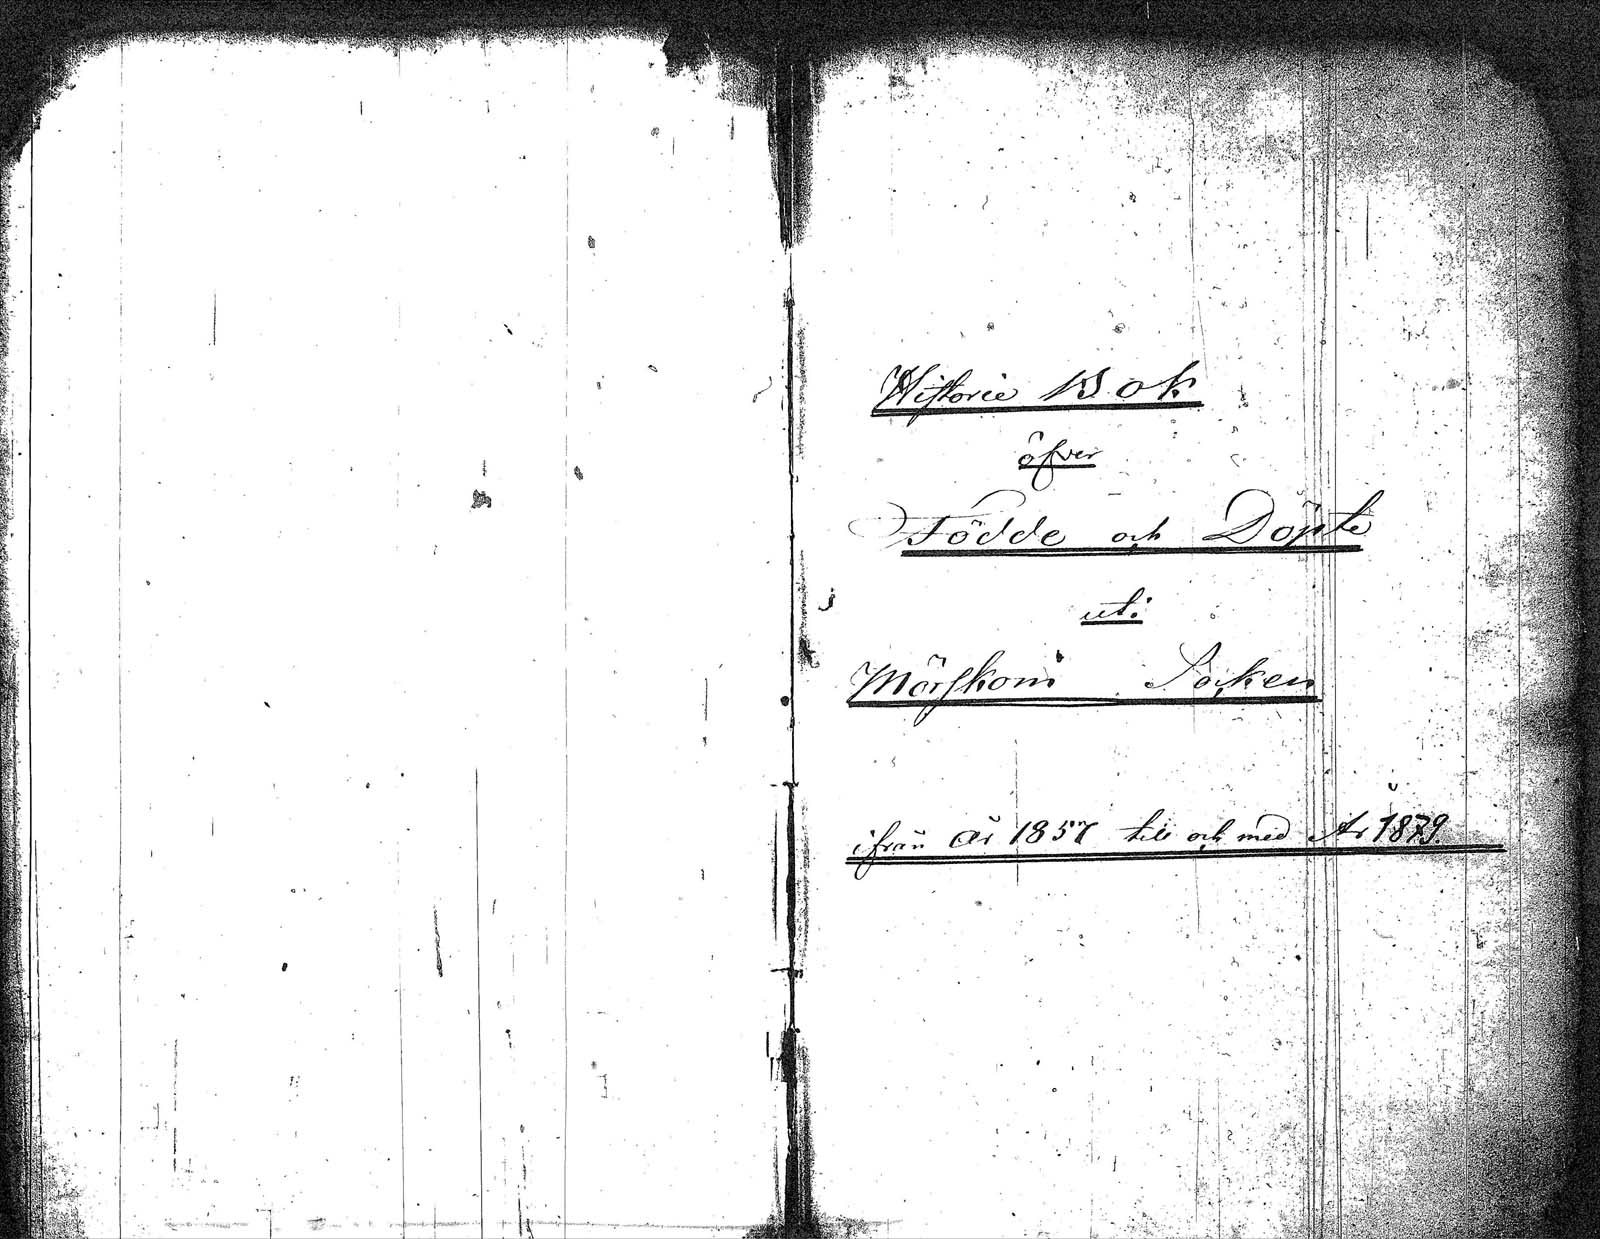 Historie Bok
öfver
Födde och Döpte
uti
Mörskom Socken
ifrån år 1857 till och med År 1879.